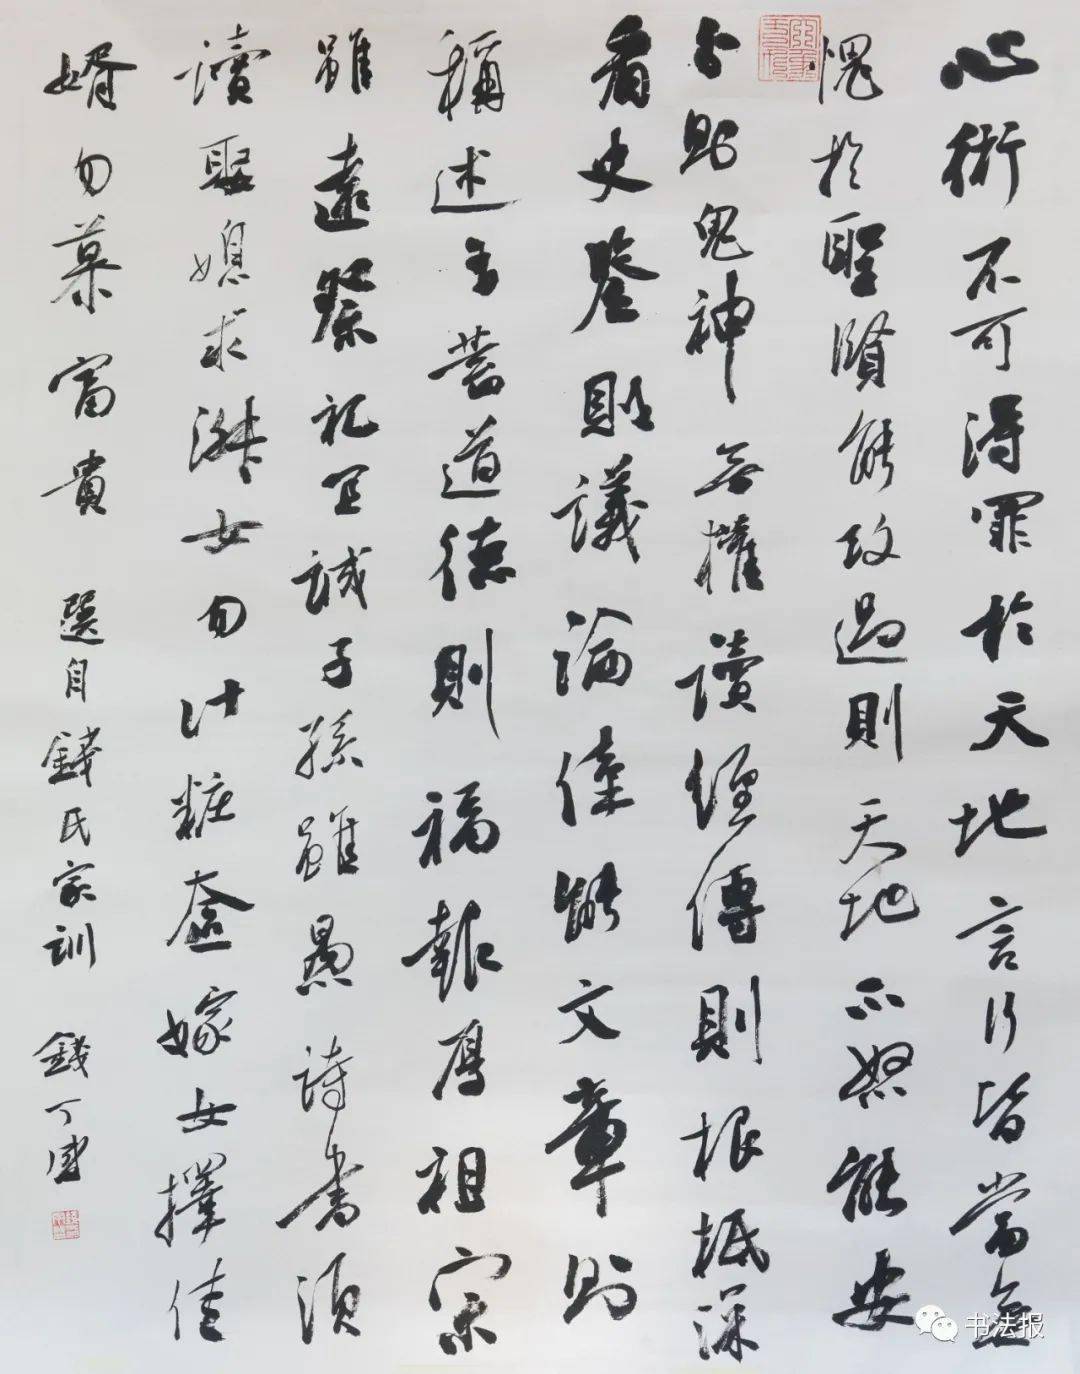 心術不可得罪於天地言行皆當無
愧於聖賢能改過則天地不怒能安
分則鬼神無權讀經傳則根柢深
看史鑒則議論偉能文章則
稱述多蓄道德則福報厚祖宗
雖遠祭祀宜誠子孫雖愚詩書須
讀娶媳求淑女勿計粧奩嫁女擇佳
婿勿慕富貴 選自錢氏家訓 錢丁盛
书法报